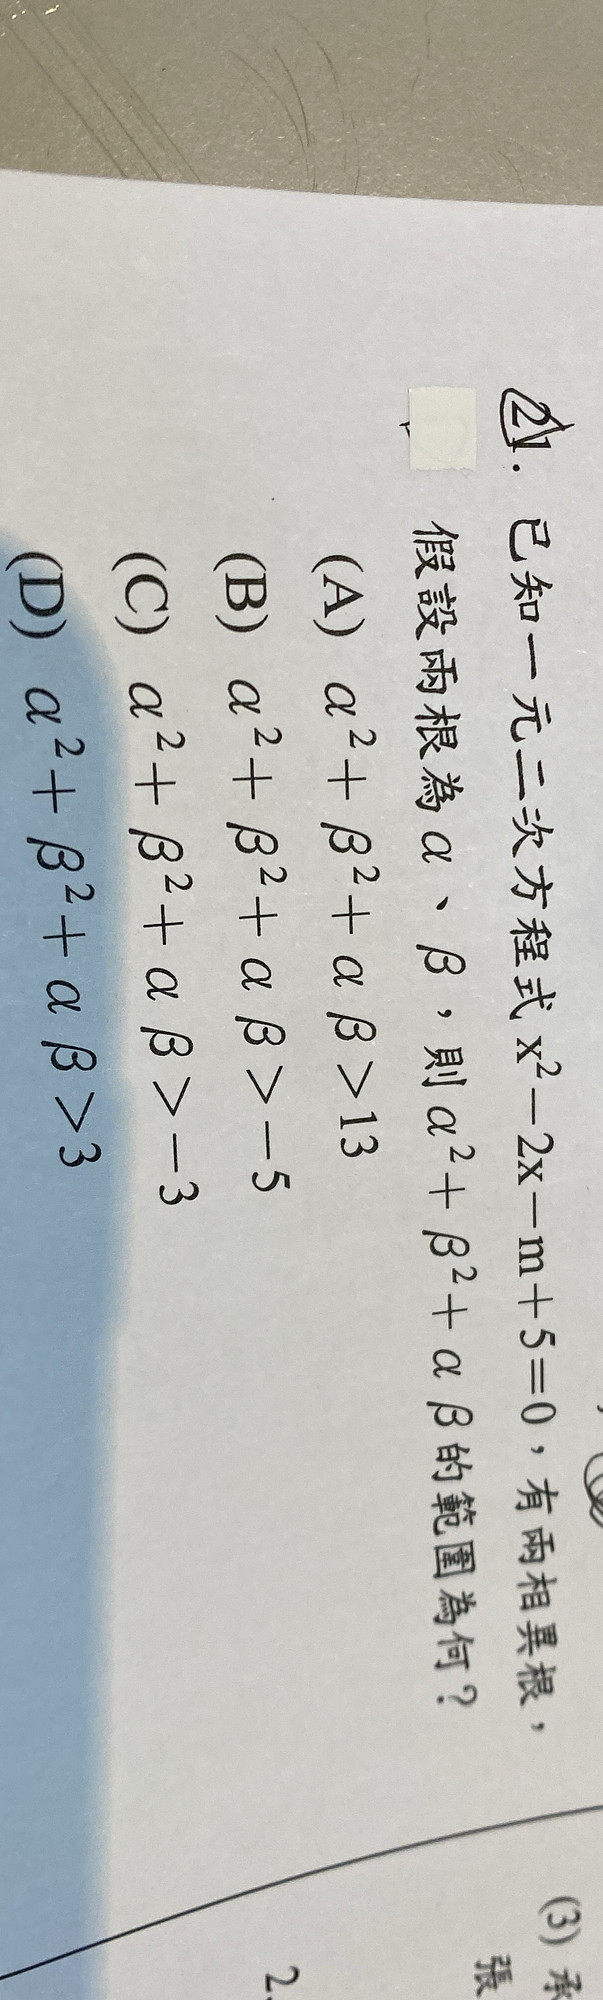 21. 已知一元二次方程式 x²－2x－m＋5＝0，有兩相異根，
假設兩根為α、β，則α²＋β²＋αβ的範圍為何？
(A) α²＋β²＋αβ＞13
(B) α²＋β²＋αβ＞－5
(C) α²＋β²＋αβ＞－3
(D) α²＋β²＋αβ＞3
(3) 承
張
2.